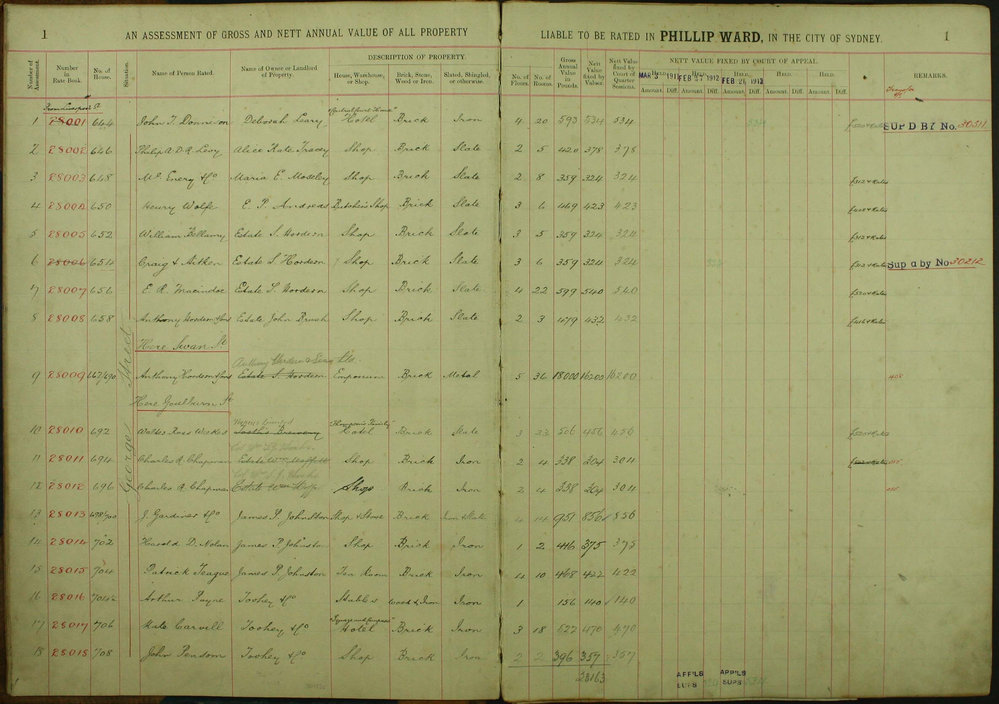 1 AN ASSESSMENT OF GROSS AND NETT ANNUAL VALUE OF ALL PROPERTY LIABLE TO BE RATED IN PHILLIP WARD, IN THE CITY OF SYDNEY. 1
DESCRIPTION OF PROPERTY. NETT VALUE FIXED BY COURT OF APPEAL.
Number of Assessment. Number in Rate Book. No. of House. Situation. Name of Person Rated. Name of Owner or Landlord of Property. House, Warehouse, or Shop. Brick, Stone, Wood or Iron. Slated, Shingled, or otherwise. No. of Floors. No. of Rooms. Gross Annual Value in Pounds. Nett Value fixed by Nett Value fixed by Court of Quarter Sessions. Amount. Diff. Amount. Diff. Amount. Diff. Amount. Diff. Amount. Diff. REMARKS.
FEB 27 1912
George Street
1 28001 644 John T. Donnison Deborah Leary Hotel Brick Iron 4 20 593 534 534 SUP D BY No. 30311
2 28002 646 Philip A. D. R. Levy Alice Kate Tracey Shop Brick Slate 2 5 420 378 378
3 28003 648 Mc Enery & Co Maria E. Moseley Shop Brick Slate 2 8 359 324 324
4 28004 650 Henry Wolfe E. P. Andreas Butcher's Shop Brick Slate 3 6 469 423 423
5 28005 652 William Bellamy Estate S. Hordern Shop Brick Slate 3 5 359 324 324
6 28006 654 Craig & Aitken Estate S. Hordern Shop Brick Slate 3 6 359 324 324 Sup d by No 30212
7 28007 656 E. R. Macindoe Estate S. Hordern Shop Brick Slate 4 22 599 540 540
8 28008 658 Anthony Hordern & Sons Estate John Brush Shop Brick Slate 2 3 479 432 432
Here Swan St
Anthony Hordern & Sons Ltd.
9 28009 Anthony Hordern & Sons Estate S. Hordern Emporium Brick Metal 5 36 18000 16200 16200
Here Goulburn St
10 28010 692 Walter Ross Weekes Tooth's Brewery Hotel Brick Slate 3 22 506 456 456
11 28011 694 Charles R. Chapman Shop Brick Iron 2 4 338 304 304
12 28012 696 Charles R. Chapman Shop Brick Iron 2 4 338 304 304
13 28013 698/700 J. Gardiner & Co James P. Johnston Shop & Store Brick Iron & Slate 951 856 856
14 28014 702 Harold D. Nolan James P. Johnston Shop Brick Iron 1 2 416 375 375
15 28015 704 Patrick Teague James P. Johnston Tea Room Brick Iron 4 10 468 422 422
16 28016 704½ Arthur Payne Toohey & Co Stables Wood & Iron Iron 1 156 140 140
17 28017 706 Kate Carvill Toohey & Co Hotel Brick Iron 3 18 522 470 470
18 28018 708 John Pendom Toohey & Co Shop Brick Iron 2 2 396 357 357
28163
APP'LS APP'LS
SUPS SUPS